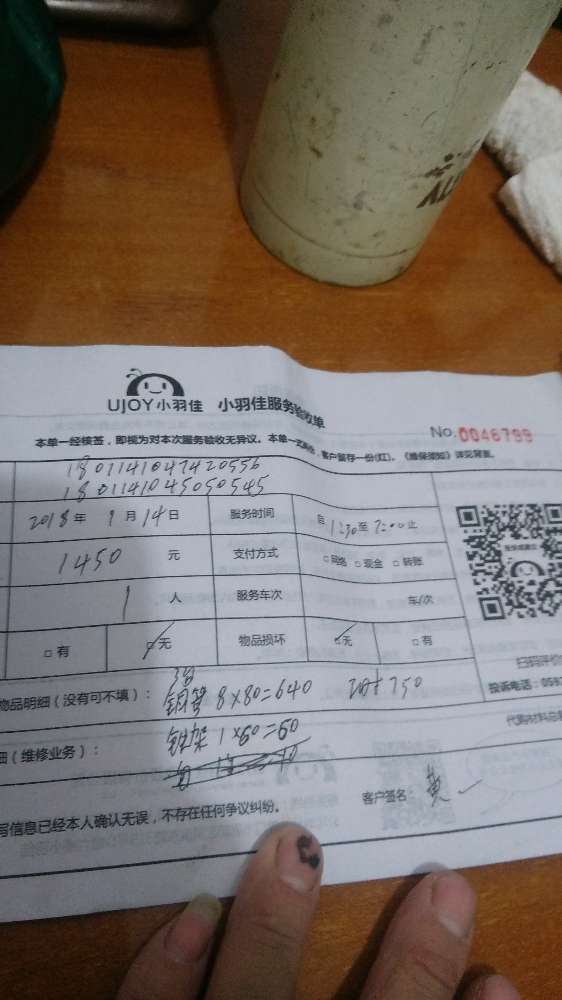 UJOY小羽佳 小羽佳服务验收单
No.0046799
本单一经核签，即视为对本次服务验收无异议。本单一式两份，客户留存一份(红)。《维保须知》详见背面。
1801141047420556
1801141045050545
2018年 1月14日 服务时间 自1230至7200止
1450 元 支付方式 □网络 □现金 □转账
1 人 服务车次 车/次
□有 □无 物品损坏 □无 □有
扫码评价
物品明细（没有可不填）： 铜管 8×80=640 750
投诉电话：059
细（维修业务）： 1×60=60
代购材料总额
写信息已经本人确认无误，不存在任何争议纠纷。 客户签名：黄